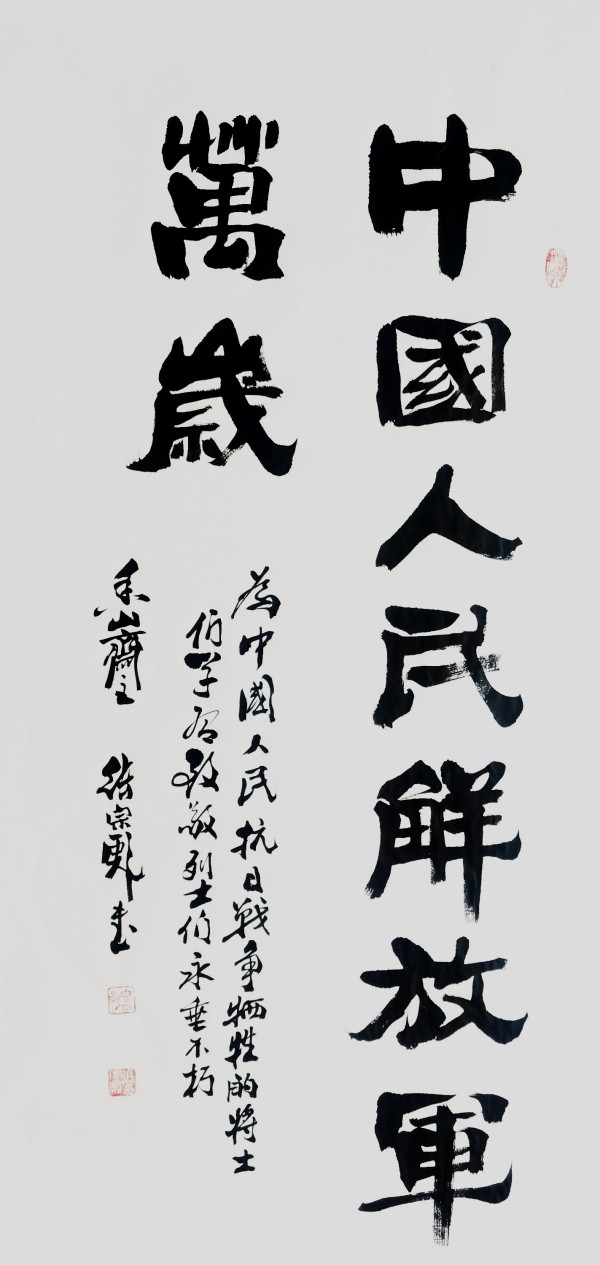 中國人民解放軍
萬歲
為中國人民抗日戰争牺牲的將士
们致敬烈士们永垂不朽
香山齋主 徐宗書